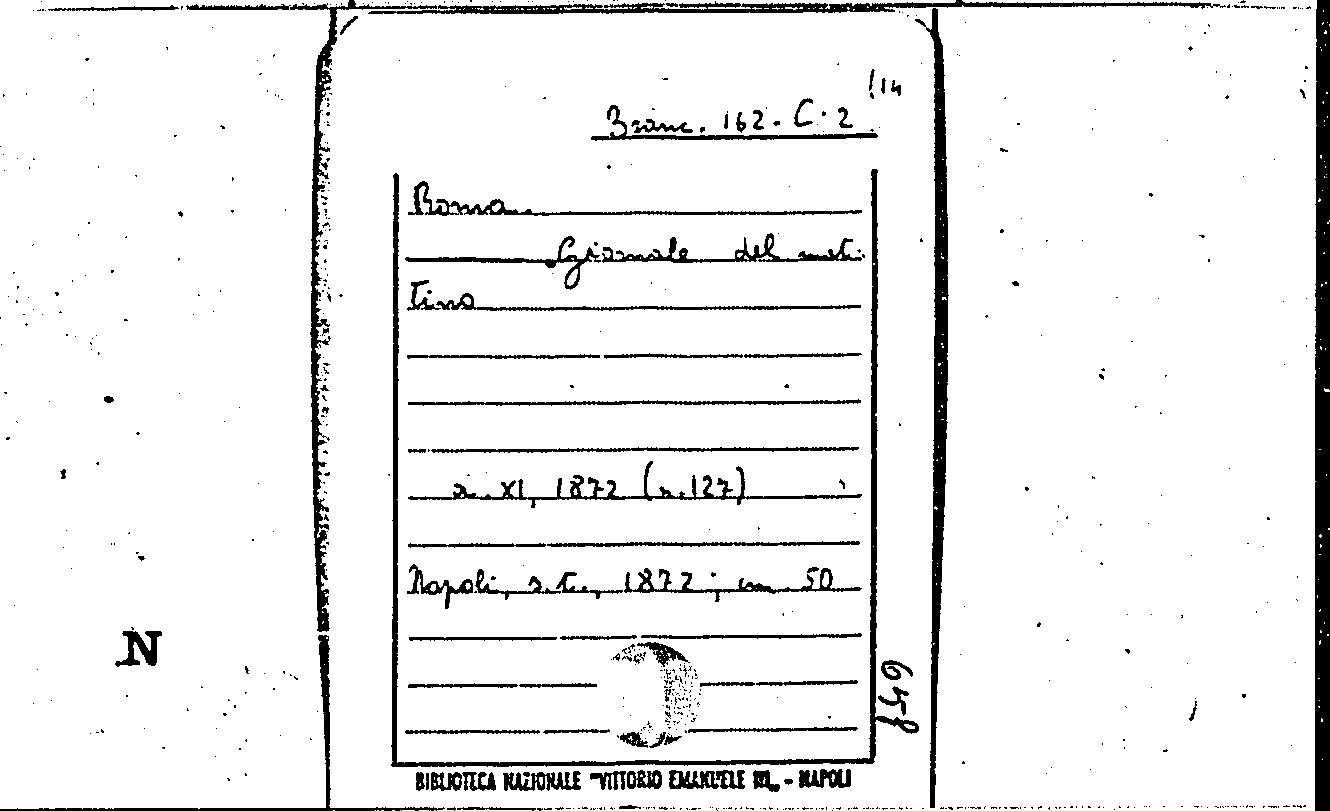 (14
Branc. 162. C. 2
Roma.
Giornale del mat-
tino
a. XI, 1872 (n. 127)
Napoli, s.t., 1872; cm. 50
N
BIBLIOTECA NAZIONALE "VITTORIO EMANUELE III" - NAPOLI